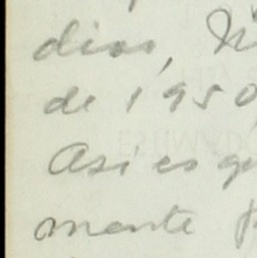 dias,
de 1950
Asi es
mente